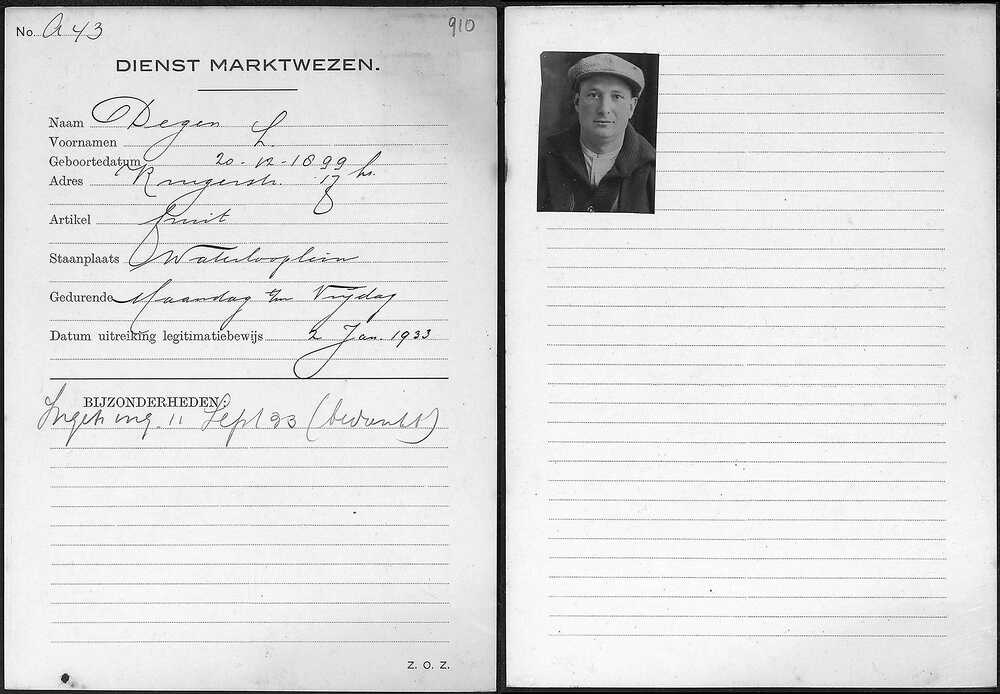 No. A 43
910
DIENST MARKTWEZEN.
Naam Degen
Voornamen L.
Geboortedatum 20-12-1899
Adres Krugerstr. 17 hs.
Artikel fruit
Staanplaats Waterlooplein
Gedurende Maandag t/m Vrijdag
Datum uitreiking legitimatiebewijs 2 Jan. 1933
BIJZONDERHEDEN:
Ingetr. ing. 11 Sept 33 (bedankt)
Z. O. Z.